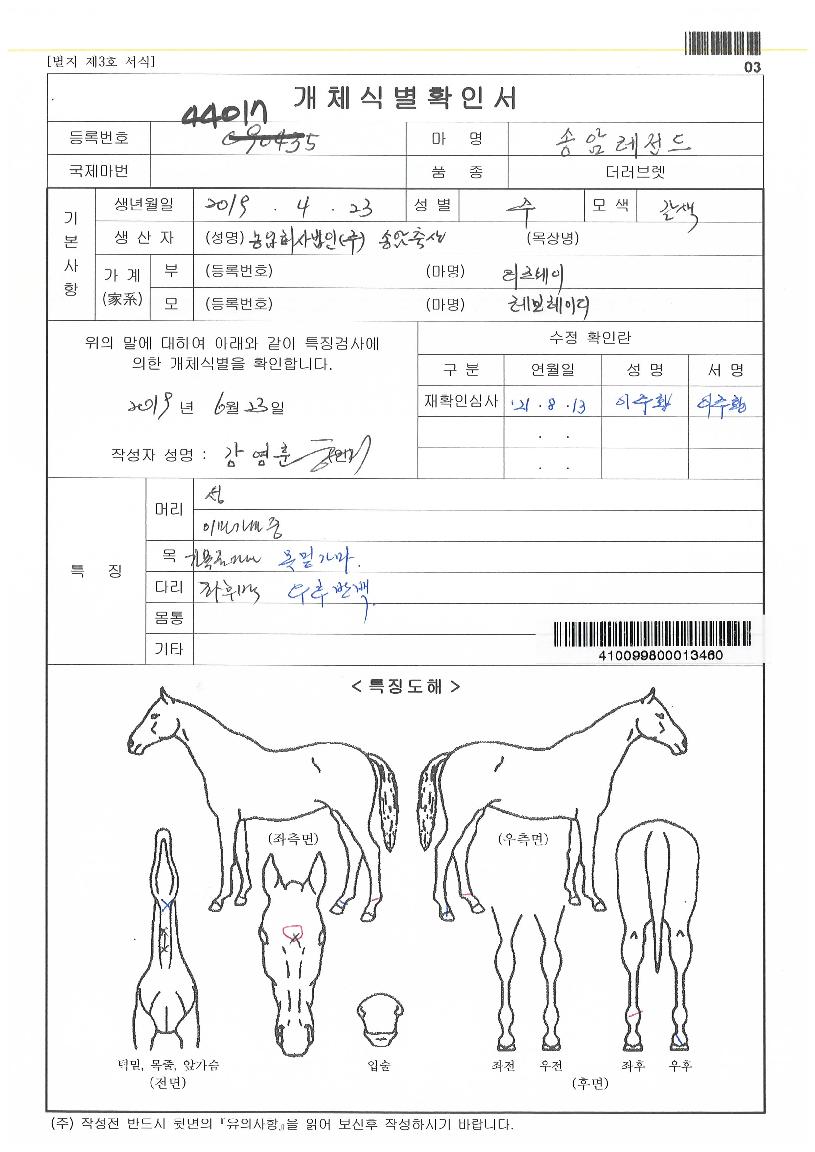 [별지 제3호 서식]
03
개체식별확인서
44017
등록번호 090435 마 명 송암레전드
국제마번 품 종 더러브렛
기본사항
생년월일 2019 . 4 . 23 성 별 수 모 색 갈색
생 산 자 (성명) 농업회사법인(주) 송암축산 (목상명)
가 계 (家系) 부 (등록번호) (마명)
모 (등록번호) (마명)
위의 말에 대하여 아래와 같이 특징검사에
의한 개체식별을 확인합니다.
2019 년 6월 23일
작성자 성명 : 강영훈
수정 확인란
구 분 연월일 성 명 서 명
재확인심사 '21 . 8 . 13 이주환 이주환
. .
. .
특 징
머리 성
목 목밑가마.
다리 좌후백 우후반백
몸통
기타
410099800013460
< 특징도해 >
(좌측면) (우측면)
턱밑, 목줄, 앞가슴 입술 좌전 우전 좌후 우후
(전면) (후면)
(주) 작성전 반드시 뒷면의 『유의사항』을 읽어 보신후 작성하시기 바랍니다.